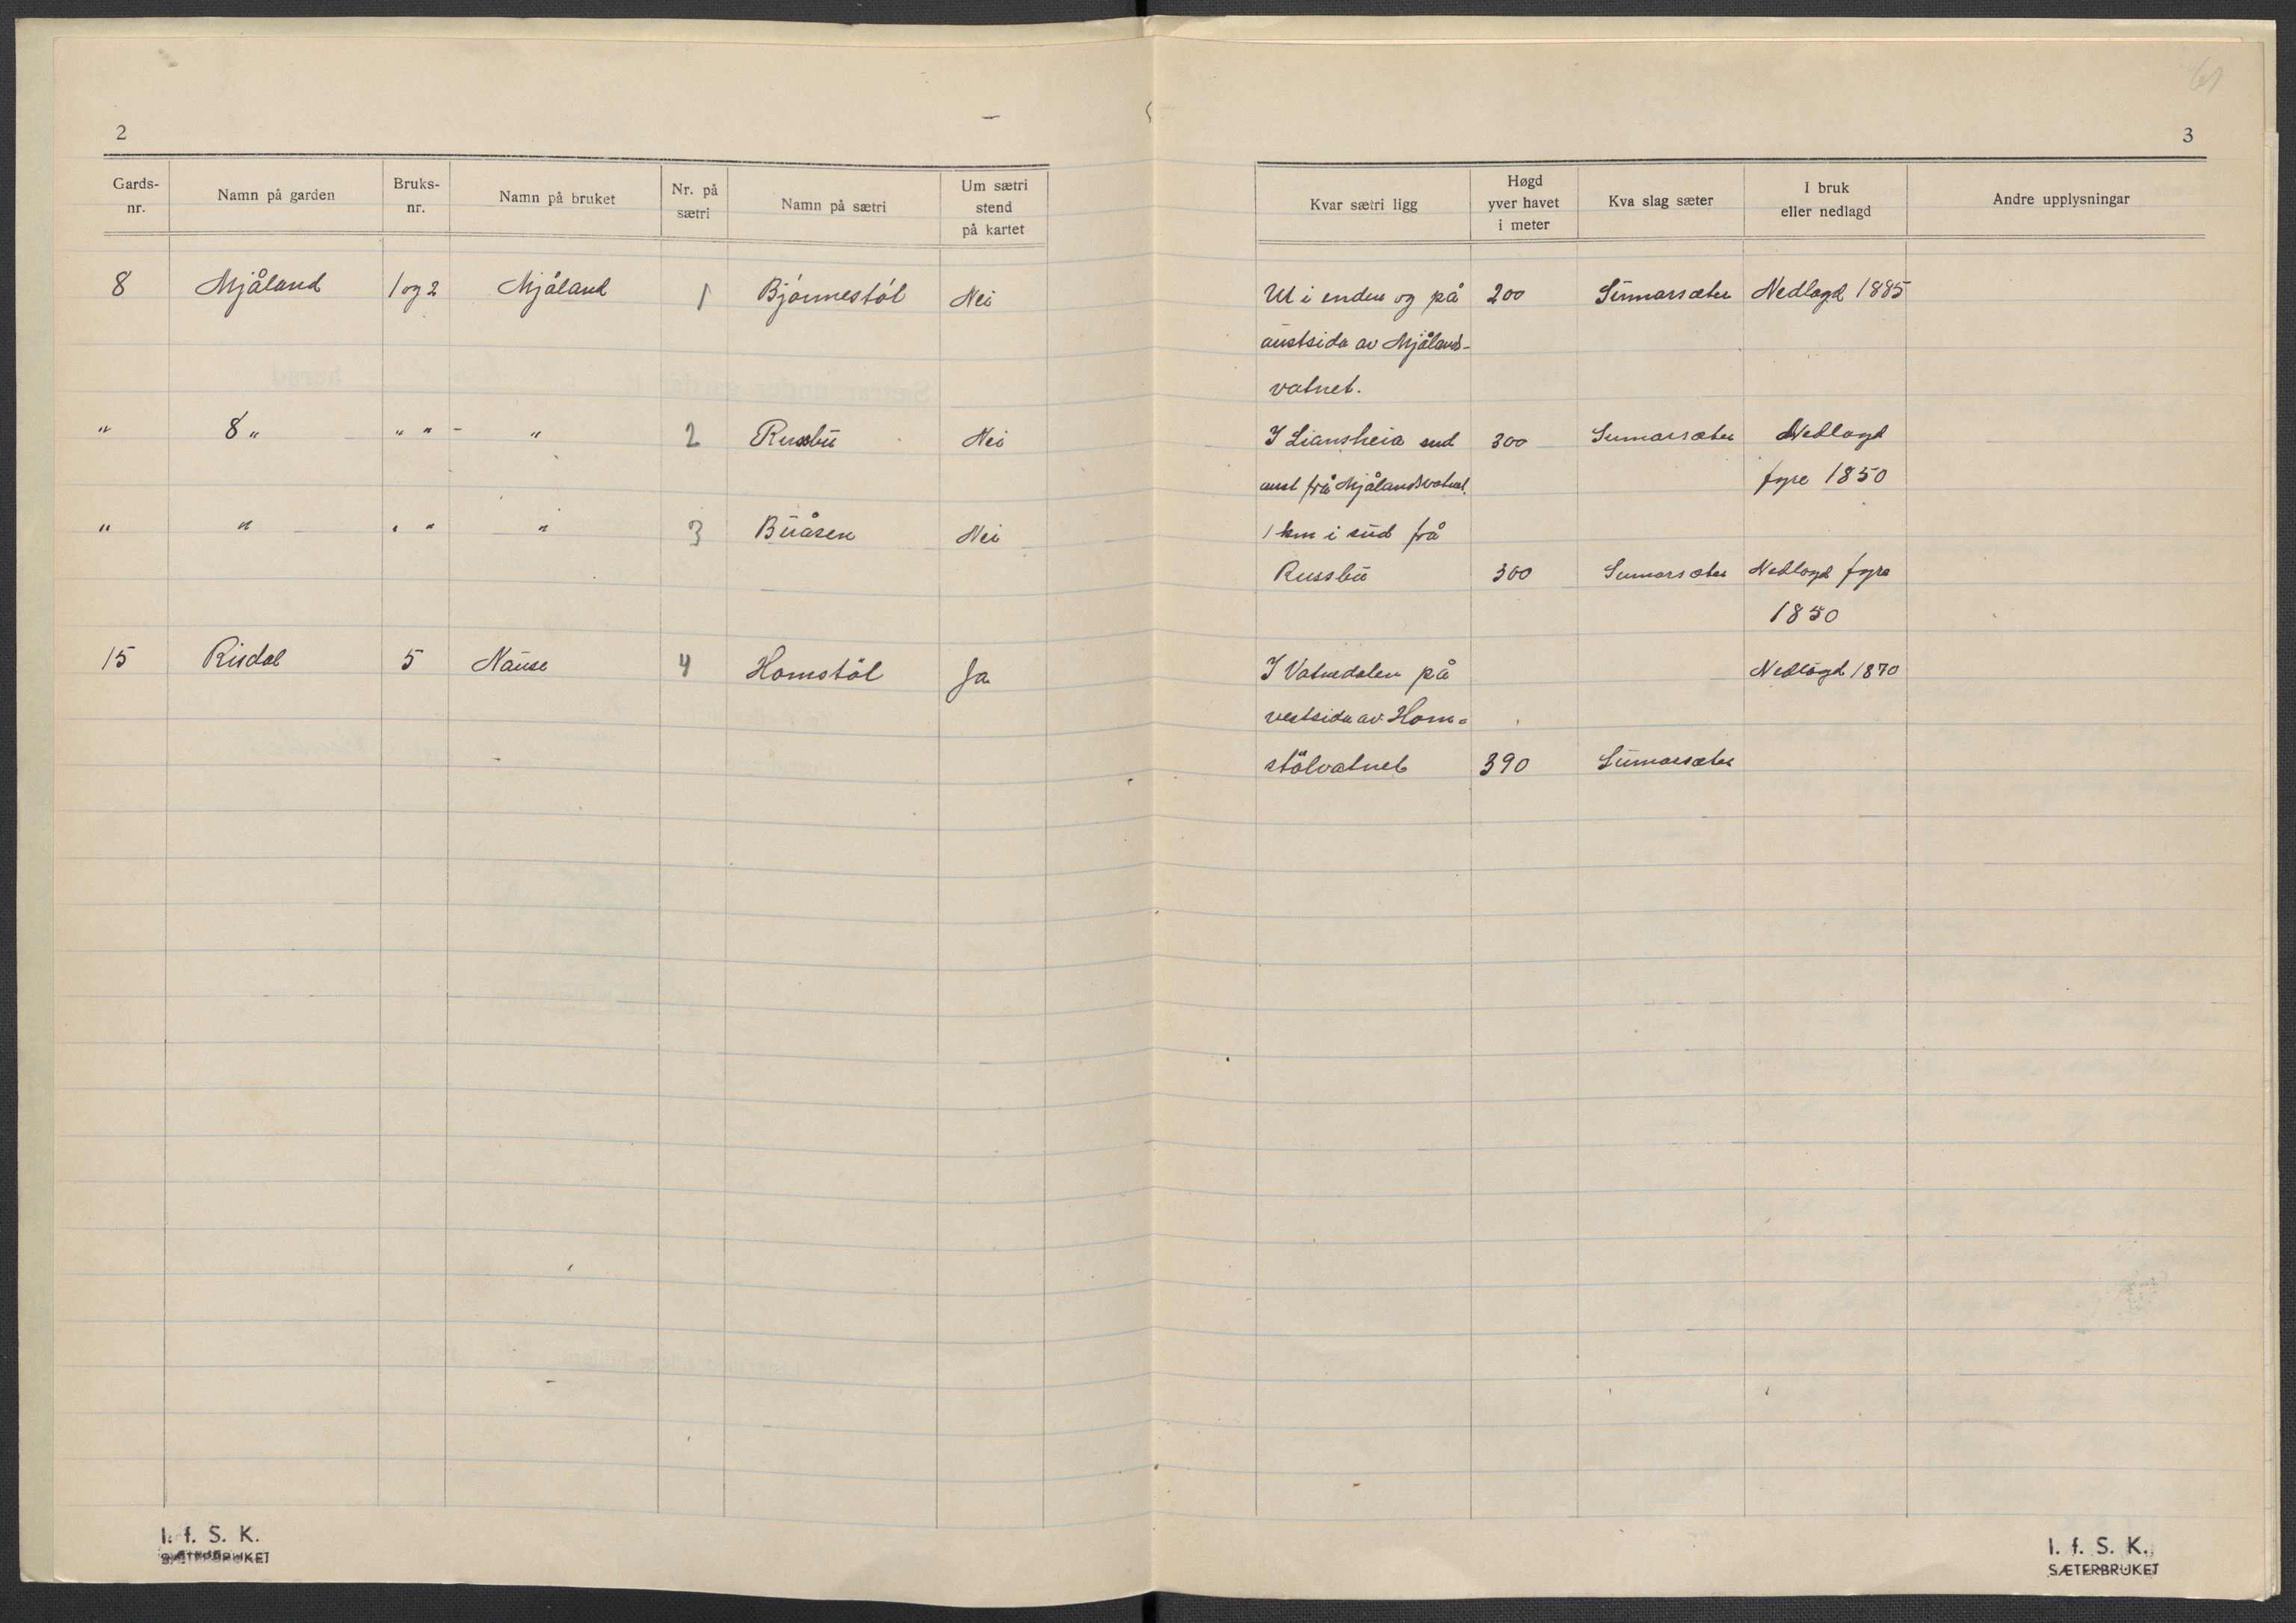 2
Gards-
nr.
Namn på garden
Bruks-
nr.
Namn på bruket
Nr. på
sætri
Namn på sætri
Um sætri
stend
på kartet
8 Mjåland 1 og 2 Mjåland 1 Bjønnestøl Nei
" 8 " " " - " 2 Russbu Nei
" " " " " 3 Buåsen Nei
15 Risdal 5 Nause 4 Homstöl Ja
I. f. S. K.
SÆTERBRUKET
61
3
Kvar sætri ligg
Høgd
yver havet
i meter
Kva slag sæter
I bruk
eller nedlagd
Andre upplysningar
Ut i enden og på 200 Sumarsæter Nedlagd 1885
austsida av Mjålands-
vatnet.
I Liansheia sud 300 Sumarsæter Nedlagd
aust frå Mjålandsvatnet. fyre 1850
1 km i sud frå
Russbu 300 Sumarsæter Nedlagd fyre
1850
I Vatnedalen på Nedlagd 1870
vestsida av Hom-
stölvatnet 390 Sumarsæter
I. f. S. K.
SÆTERBRUKET